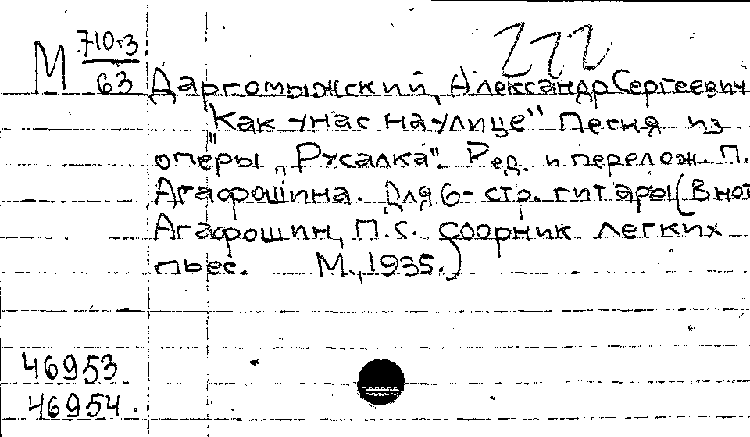 222
М 710-3
63
Даргомыжский, Александр Сергеевич
"Как у нас на улице" Песня из
оперы „Русалка". Ред. и перелож. П.
Агафошина. Для 6-стр. гитары (В нот
Агафошин, П.С. Сборник легких
пьес. М., 1935.)
46953
46954.